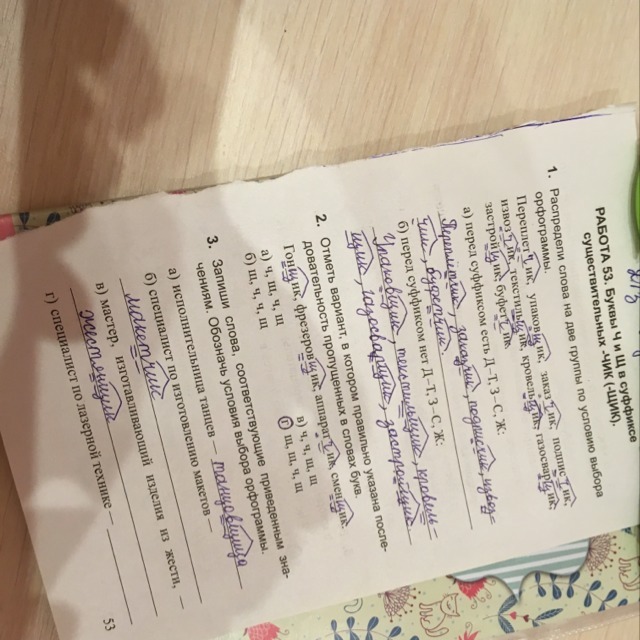 РАБОТА 53. Буквы Ч и Щ в суффиксе
существительных -ЧИК (-ЩИК).
1. Распредели слова на две группы по условию выбора
орфограммы.
Переплётчик, упаковщик, заказчик, подписчик,
извозчик, текстильщик, кровельщик, газосварщик,
застройщик, буфетчик.
а) перед суффиксом есть Д–Т, З–С, Ж:
Переплётчик, заказчик, подписчик, извоз-
чик, буфетчик.
б) перед суффиксом нет Д–Т, З–С, Ж:
Упаковщик, текстильщик, кровель-
щик, газосварщик, застройщик
2. Отметь вариант, в котором правильно указана после-
довательность пропущенных в словах букв.
Гонщик, фрезеровщик, аппаратчик, сменщик.
а) ч, щ, ч, щ
в) ч, ч, щ, щ
б) щ, ч, ч, щ
г) щ, щ, ч, щ
3. Запиши слова, соответствующие приведенным зна-
чениям. Обозначь условия выбора орфограммы.
а) исполнительница танцев – танцовщица
б) специалист по изготовлению макетов –
макетчик
в) мастер, изготавливающий изделия из жести, –
жестянщик
г) специалист по лазерной технике –
53